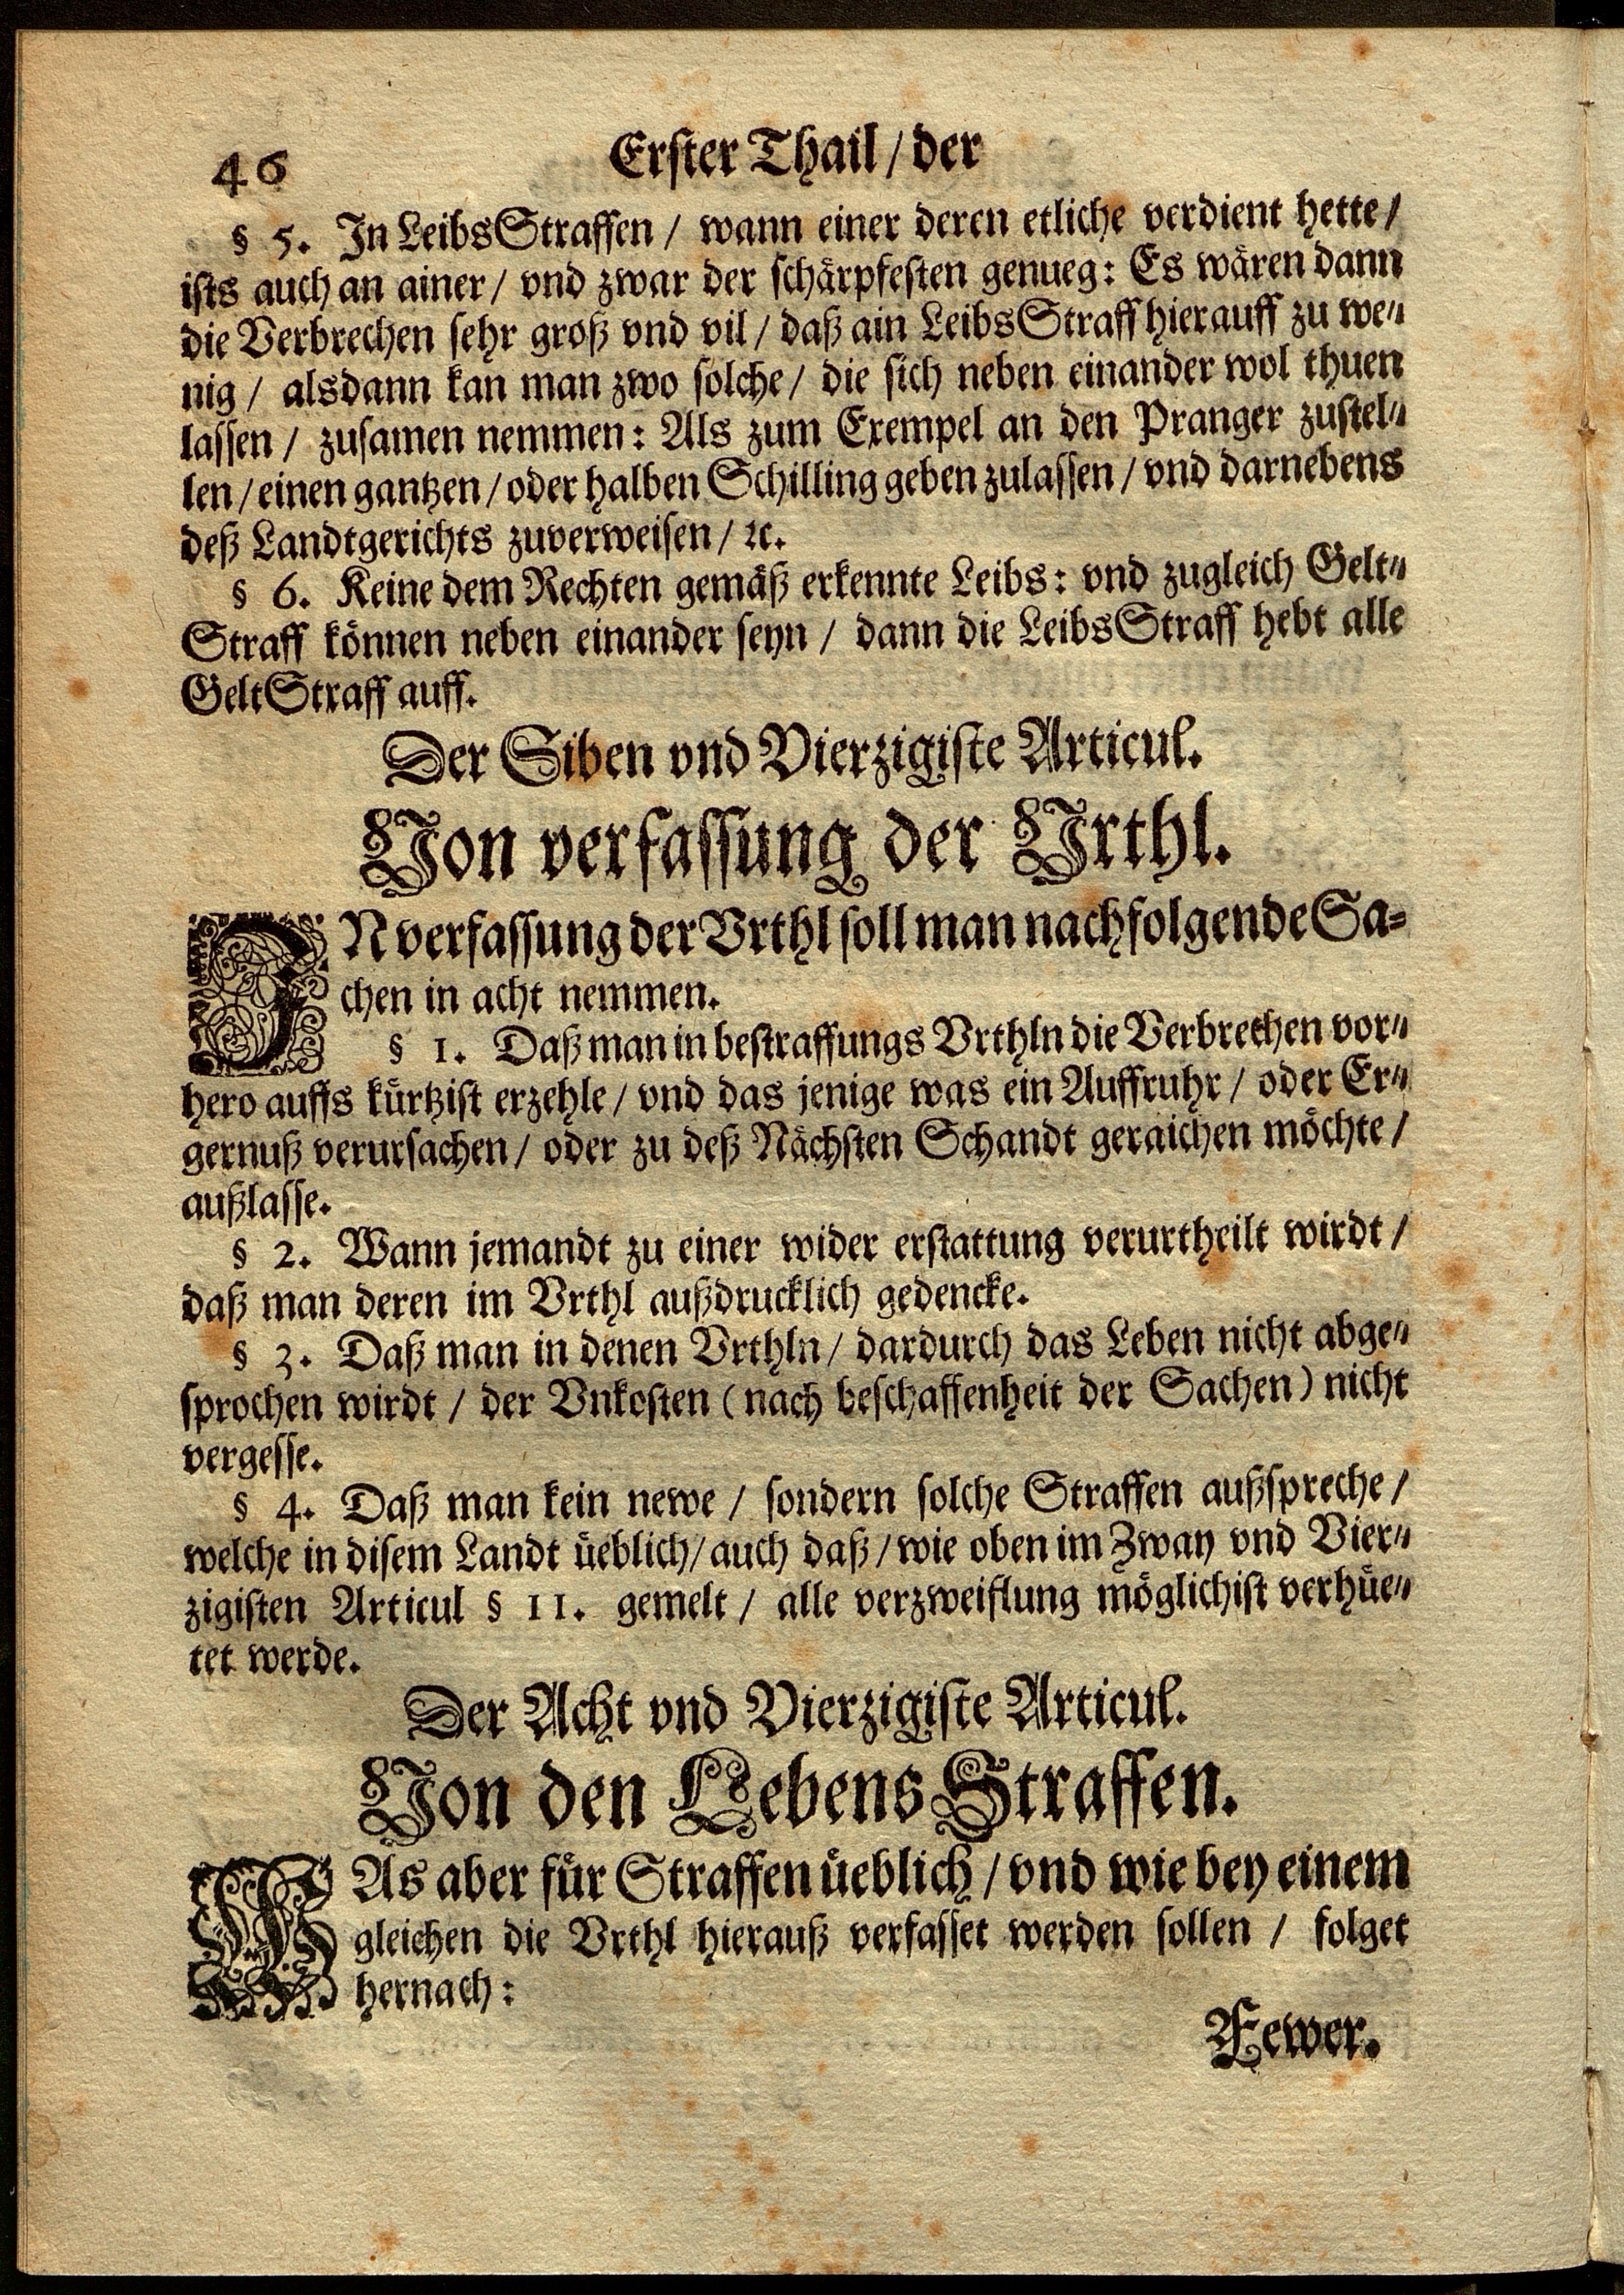 46 Erster Thail / der
§ 5. In LeibsStraffen / wann einer deren etliche verdient hette /
ists auch an ainer / vnd zwar der schärpfesten genueg: Es wären dann
die Verbrechen sehr groß vnd vil / daß ain LeibsStraff hierauff zu we⸗
nig / alsdann kan man zwo solche / die sich neben einander wol thuen
lassen / zusamen nemmen: Als zum Exempel an den Pranger zustel⸗
len / einen gantzen / oder halben Schilling geben zulassen / vnd darnebens
deß Landtgerichts zuverweisen / ꝛc.
§ 6. Keine dem Rechten gemäß erkennte Leibs: vnd zugleich Gelt⸗
Straff können neben einander seyn / dann die LeibsStraff hebt alle
GeltStraff auff.
Der Siben vnd Vierzigiste Articul.
Von verfassung der Vrthl.
IN verfassung der Vrthl soll man nachfolgende Sa⸗
chen in acht nemmen.
§ 1. Daß man in bestraffungs Vrthln die Verbrechen vor⸗
hero auffs kürtzist erzehle / vnd das jenige was ein Auffruhr / oder Er⸗
gernuß verursachen / oder zu deß Nächsten Schandt geraichen möchte /
außlasse.
§ 2. Wann jemandt zu einer wider erstattung verurtheilt wirdt /
daß man deren im Vrthl außdrucklich gedencke.
§ 3. Daß man in denen Vrthln / dardurch das Leben nicht abge⸗
sprochen wirdt / der Vnkosten (nach beschaffenheit der Sachen) nicht
vergesse.
§ 4. Daß man kein newe / sondern solche Straffen außspreche /
welche in disem Landt üeblich / auch daß / wie oben im Zway vnd Vier⸗
zigisten Articul § 11. gemelt / alle verzweiflung möglichist verhüe⸗
tet werde.
Der Acht vnd Vierzigiste Articul.
Von den LebensStraffen.
WAs aber für Straffen üeblich / vnd wie bey einem
gleichen die Vrthl hierauß verfasset werden sollen / folget
hernach:
Fewer.